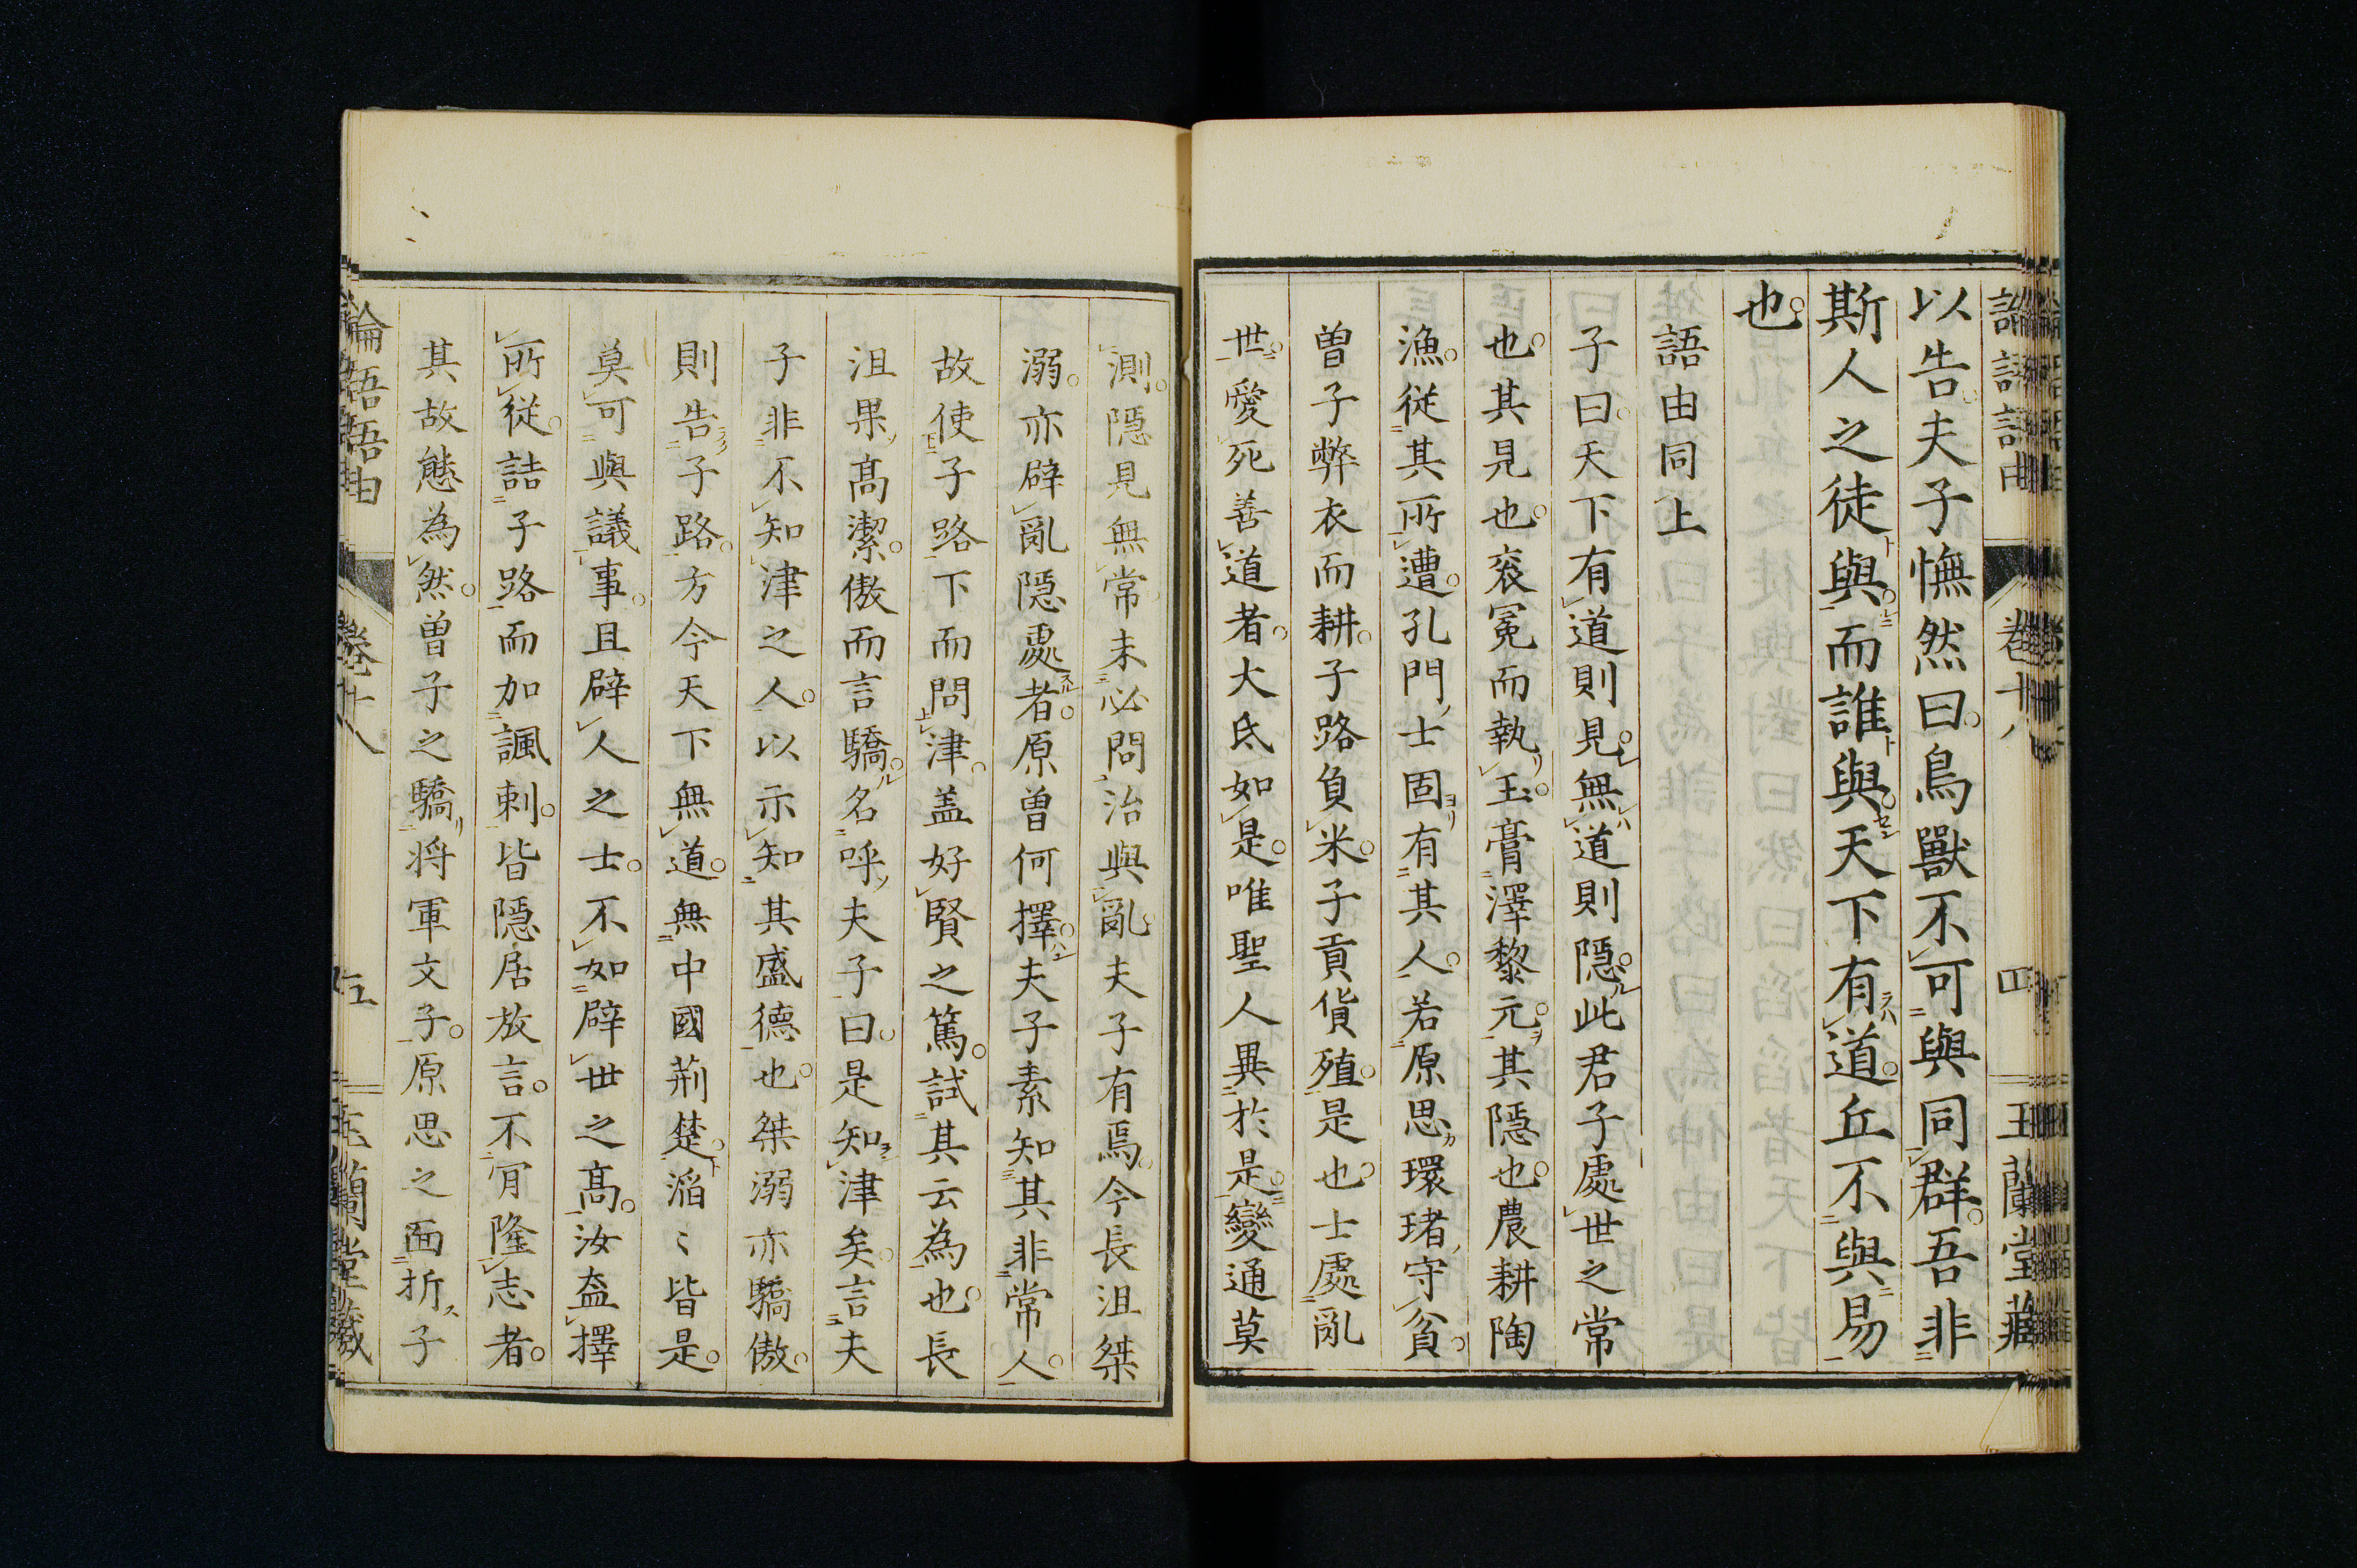 論語語由 卷十八 四 玉蘭堂藏
以告夫子憮然曰鳥獸不可與同群吾非
斯人之徒與而誰與天下有道丘不與易
也
語由同上
子曰天下有道則見無道則隱此君子處世之常
也其見也袞冕而執玉膏澤黎元其隱也農耕陶
漁從其所遭孔門士固有其人若原思環堵守貧
曽子弊衣而耕子路負米子貢貨殖是也士處亂
世愛死善道者大氐如是唯聖人異於是變通莫
測隱見無常未必問治與亂夫子有焉今長沮桀
溺亦辟亂隱處者原曽何擇夫子素知其非常人
故使子路下而問津盖好賢之篤試其云為也長
沮果髙潔傲而言驕名呼夫子曰是知津矣言夫
子非不知津之人以示知其盛德也桀溺亦驕傲
則告子路方今天下無道無中國荊楚滔〻皆是
莫可與議事且辟人之士不如辟世之髙汝盍擇
所從詰子路而加諷刺皆隱居放言不肎隆志者
其故態為然曽子之驕将軍文子原思之面折子
論語語由 卷十八 五 玉蘭堂藏